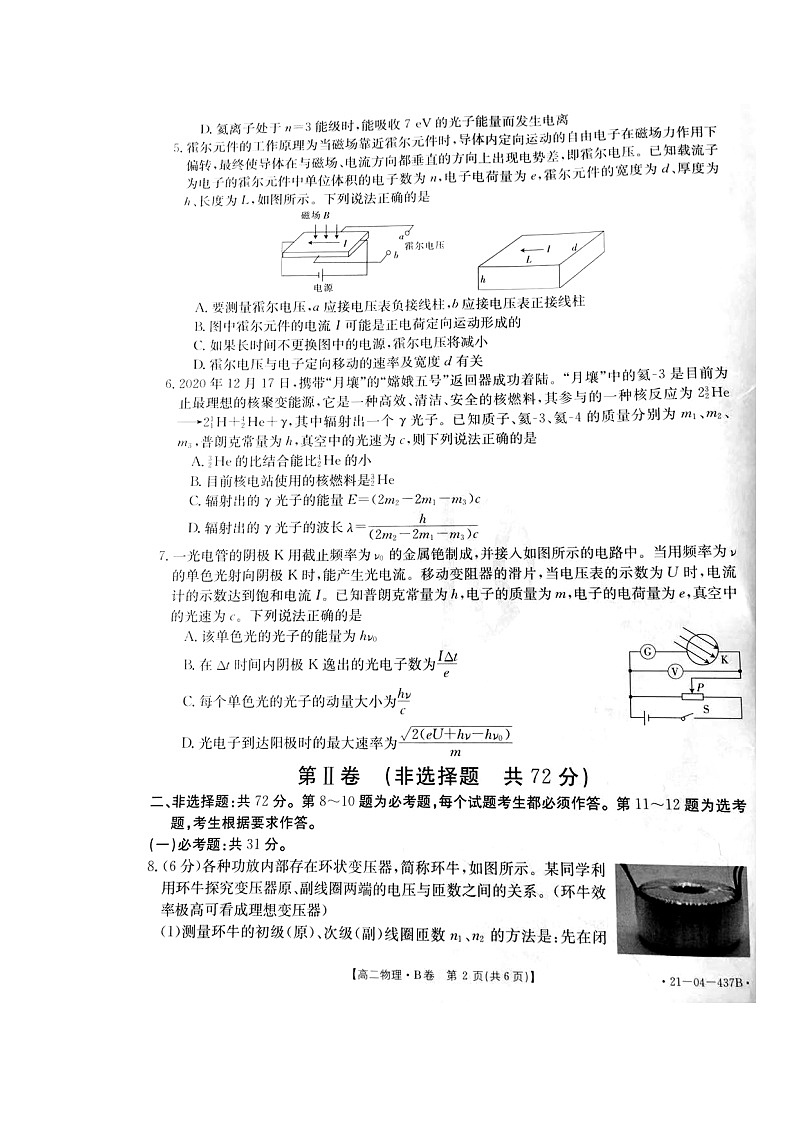 D. 氦离子处于 n=3 能级时,能吸收 7 eV 的光子能量而发生电离
5. 霍尔元件的工作原理为当磁场靠近霍尔元件时,导体内定向运动的自由电子在磁场力作用下
偏转,最终使导体在与磁场、电流方向都垂直的方向上出现电势差,即霍尔电压。已知载流子
为电子的霍尔元件中单位体积的电子数为 n,电子电荷量为 e,霍尔元件的宽度为 d、厚度为
h、长度为 L,如图所示。下列说法正确的是
磁场 B
I
a
b
霍尔电压
电源
I
L
d
h
A. 要测量霍尔电压,a 应接电压表负接线柱,b 应接电压表正接线柱
B. 图中霍尔元件的电流 I 可能是正电荷定向运动形成的
C. 如果长时间不更换图中的电源,霍尔电压将减小
D. 霍尔电压与电子定向移动的速率及宽度 d 有关
6. 2020 年 12 月 17 日,携带“月壤”的“嫦娥五号”返回器成功着陆。“月壤”中的氦-3 是目前为
止最理想的核聚变能源,它是一种高效、清洁、安全的核燃料,其参与的一种核反应为 2³₂He
⟶2¹₁H+⁴₂He+γ,其中辐射出一个 γ 光子。已知质子、氦-3、氦-4 的质量分别为 m₁、m₂、
m₃,普朗克常量为 h,真空中的光速为 c,则下列说法正确的是
A. ³₂He 的比结合能比⁴₂He 的小
B. 目前核电站使用的核燃料是³₂He
C. 辐射出的 γ 光子的能量 E=(2m₂−2m₁−m₃)c
D. 辐射出的 γ 光子的波长 λ=h/((2m₂−2m₁−m₃)c)
7. 一光电管的阴极 K 用截止频率为 ν₀ 的金属铯制成,并接入如图所示的电路中。当用频率为 ν
的单色光射向阴极 K 时,能产生光电流。移动变阻器的滑片,当电压表的示数为 U 时,电流
计的示数达到饱和电流 I。已知普朗克常量为 h,电子的质量为 m,电子的电荷量为 e,真空中
的光速为 c。下列说法正确的是
A. 该单色光的光子的能量为 hν₀
B. 在 Δt 时间内阴极 K 逸出的光电子数为 IΔt/e
C. 每个单色光的光子的动量大小为 hν/c
D. 光电子到达阳极时的最大速率为 √(2(eU+hν−hν₀))/m
G
K
V
P
S
第Ⅱ卷 (非选择题 共 72 分)
二、非选择题:共 72 分。第 8~10 题为必考题,每个试题考生都必须作答。第 11~12 题为选考
题,考生根据要求作答。
(一)必考题:共 31 分。
8. (6 分)各种功放内部存在环状变压器,简称环牛,如图所示。某同学利
用环牛探究变压器原、副线圈两端的电压与匝数之间的关系。(环牛效
率极高可看成理想变压器)
(1)测量环牛的初级(原)、次级(副)线圈匝数 n₁、n₂ 的方法是:先在闭
【高二物理·B卷 第 2 页(共 6 页)】
·21-04-437B·